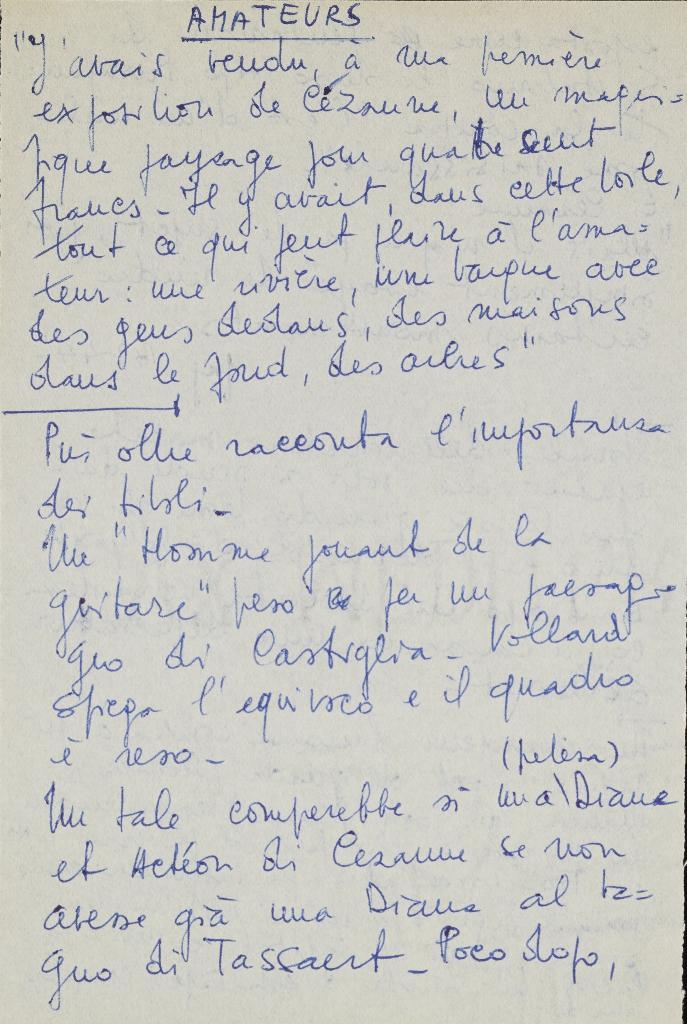 AMATEURS
"J'avais vendu, à ma première
exposition de Cézanne, un magni=
fique paysage pour quatre cent
francs - Il y avait, dans cette toile,
tout ce qui peut plaire à l'ama=
teur: une rivière, une barque avec
des gens dedans, des maisons
dans le fond, des arbres"
Più oltre racconta l'importanza
dei titoli -
Un "Homme jouant de la
guitare" preso per un paesag
gio di Castiglia - Vollard
spiega l'equivoco e il quadro
è reso -
(pelosa)
Un tale comprerebbe sì una\Diana
et Actéon di Cezanne se non
avesse già una Diana al ba=
gno di Tassaert - Poco dopo,